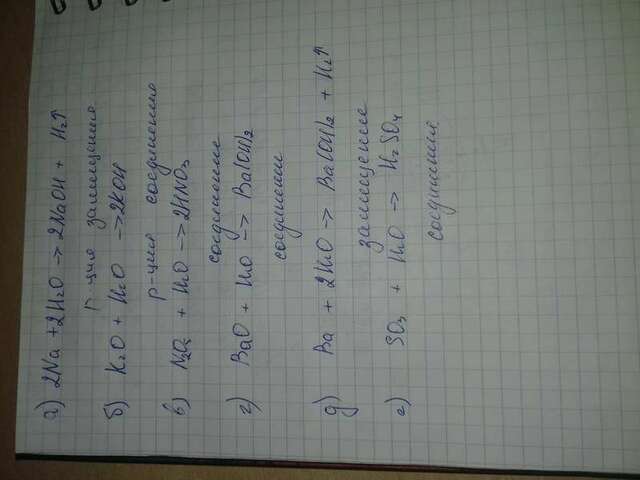 а) 2Na + 2H₂O → 2NaOH + H₂↑
р-ция замещения
б) K₂O + H₂O → 2KOH
р-ция соединения
в) N₂O₅ + H₂O → 2HNO₃
соединение
г) BaO + H₂O → Ba(OH)₂
соединени
д) Ba + 2H₂O → Ba(OH)₂ + H₂↑
замещение
е) SO₃ + H₂O → H₂SO₄
соединения